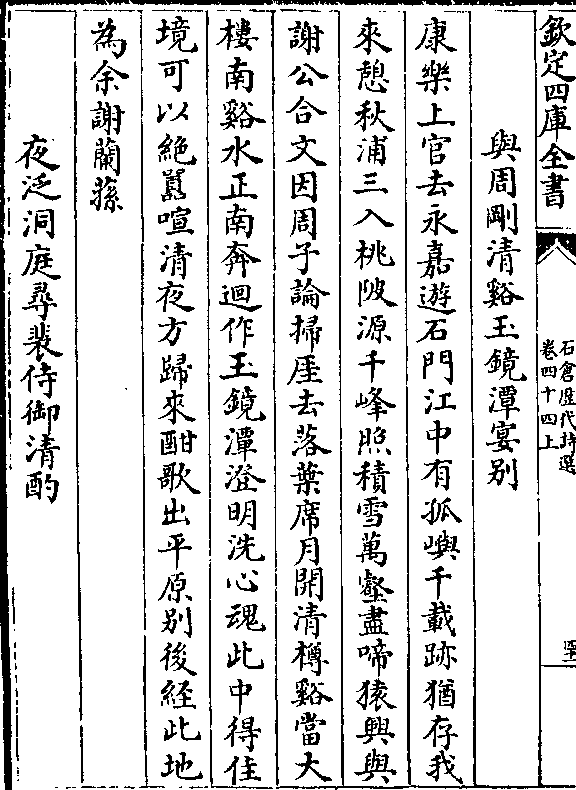 欽定四庫全書
石倉歷代詩選
卷四十四上
與周剛清谿玉鏡潭宴别
康樂上官去永嘉遊石門江中有孤嶼千載跡猶存我
來憩秋浦三入桃陂源千峰照積雪萬壑盡啼猿興與
謝公合文因周子論掃厓去落葉席月開清樽谿當大
樓南谿水正南奔迴作玉鏡潭澄明洗心魂此中得佳
境可以絶囂喧清夜方歸來酣歌出平原别後經此地
為余謝蘭蓀
夜泛洞庭尋裴侍御清酌